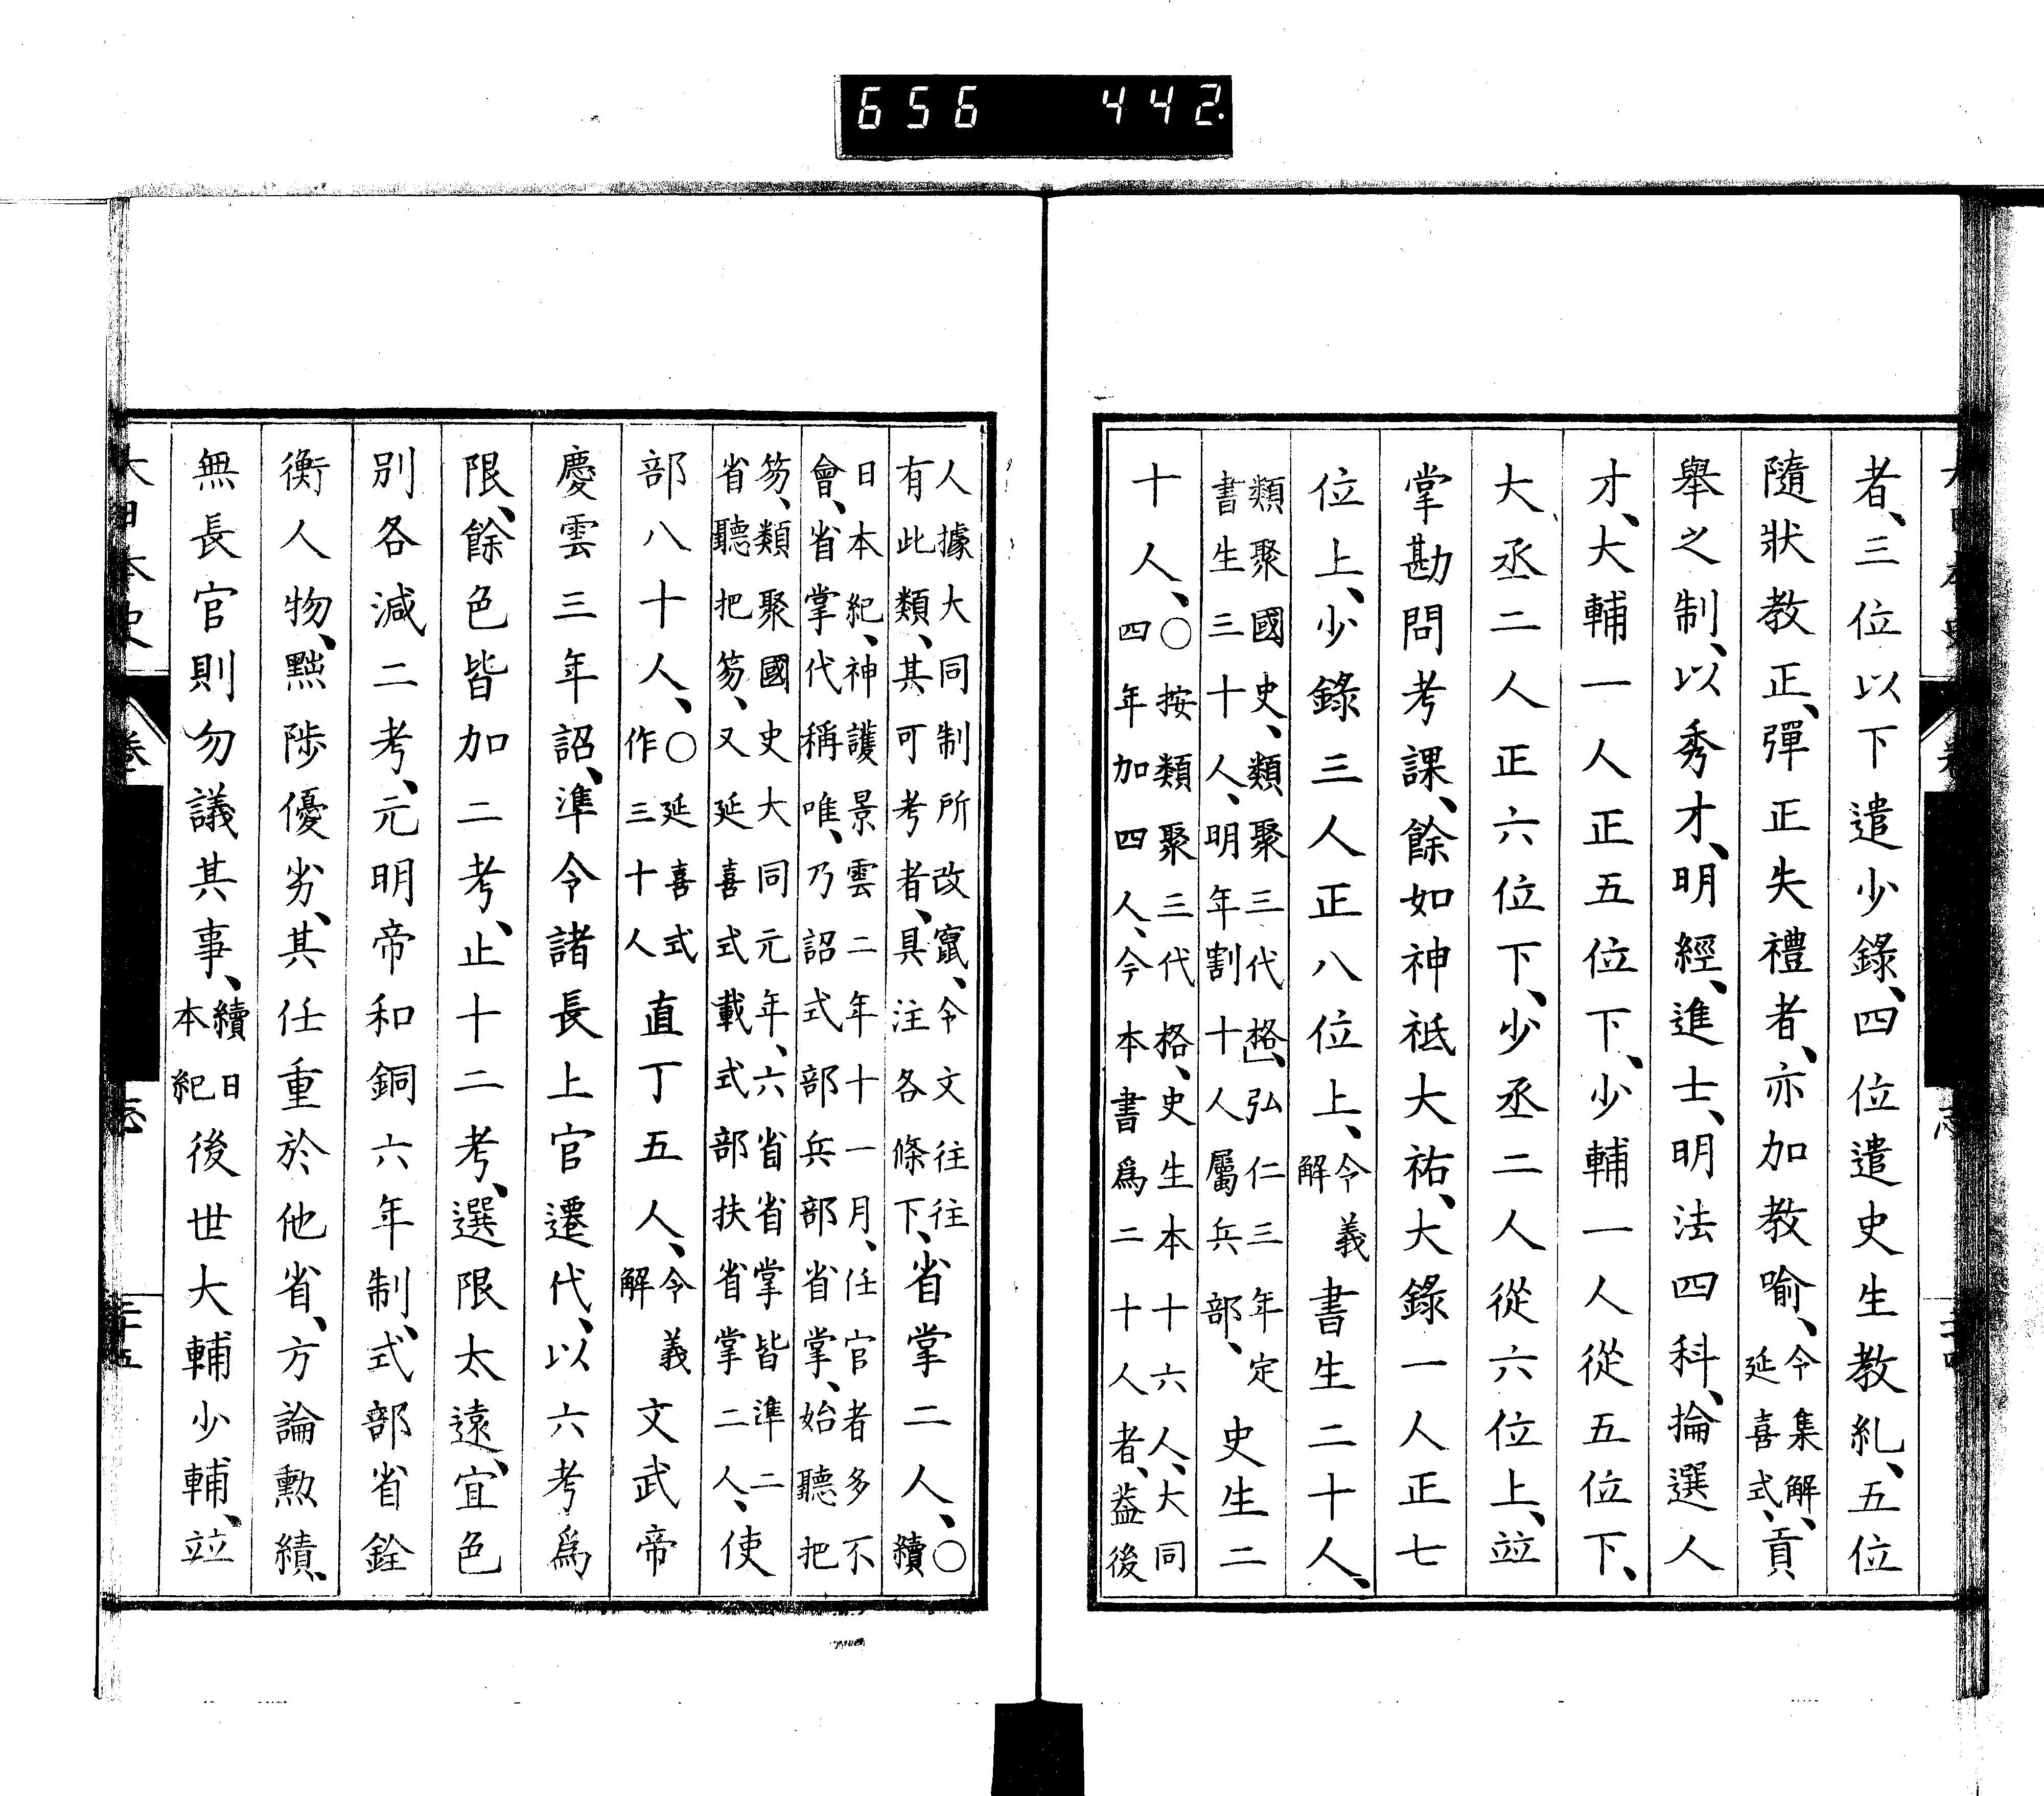 656 442
者、三位以下遣少錄、四位遣史生教糺、五位
隨狀教正、彈正失禮者、亦加教喩、令集解、延喜式、貢
舉之制、以秀才、明經、進士、明法四科、掄選人
才、大輔一人正五位下、少輔一人從五位下、
大丞二人正六位下、少丞二人從六位上、竝
掌勘問考課、餘如神祇大祐、大錄一人正七
位上、少錄三人正八位上、令義解書生二十人、
類聚國史、類聚三代格、弘仁三年定
書生三十人、明年割十人屬兵部、史生二
十人、○按類聚三代格、史生本十六人、大同
四年加四人、今本書爲二十人者、葢後
人據大同制所改竄、令文往往
有此類、其可考者、具注各條下、省掌二人、○續
日本紀、神護景雲二年十一月、任官者多不
會、省掌代稱唯、乃詔式部兵部省掌、始聽把
笏、類聚國史大同元年、六省省掌皆準二
省聽把笏、又延喜式載式部扶省掌二人、使
部八十人、○延喜式作三十人直丁五人、令義解文武帝
慶雲三年詔、準令諸長上官遷代、以六考爲
限、餘色皆加二考、止十二考、選限太遠、宜色
別各減二考、元明帝和銅六年制、式部省銓
衡人物、黜陟優劣、其任重於他省、方論勲績、
無長官則勿議其事、續日本紀後世大輔少輔、竝
大日本史 卷 志 二十五